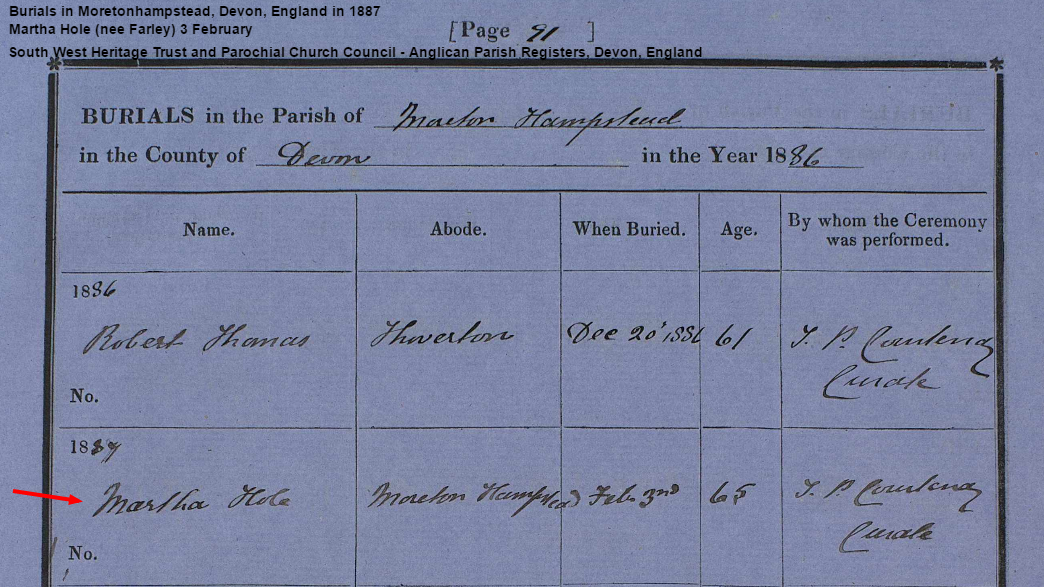 Burials in Moretonhampstead, Devon, England in 1887
Martha Hole (nee Farley) 3 February
South West Heritage Trust and Parochial Church Council - Anglican Parish Registers, Devon, England
[Page 91 ]
BURIALS in the Parish of Moreton Hampstead
in the County of Devon in the Year 1886
Name. Abode. When Buried. Age. By whom the Ceremony was performed.
1886
Robert Thomas Thoverton Dec 20 1886 61 T. P. Courtenay
Curate
No.
1887
Martha Hole Moreton Hampstead Feb. 3rd 65 T. P. Courtenay
Curate
No.